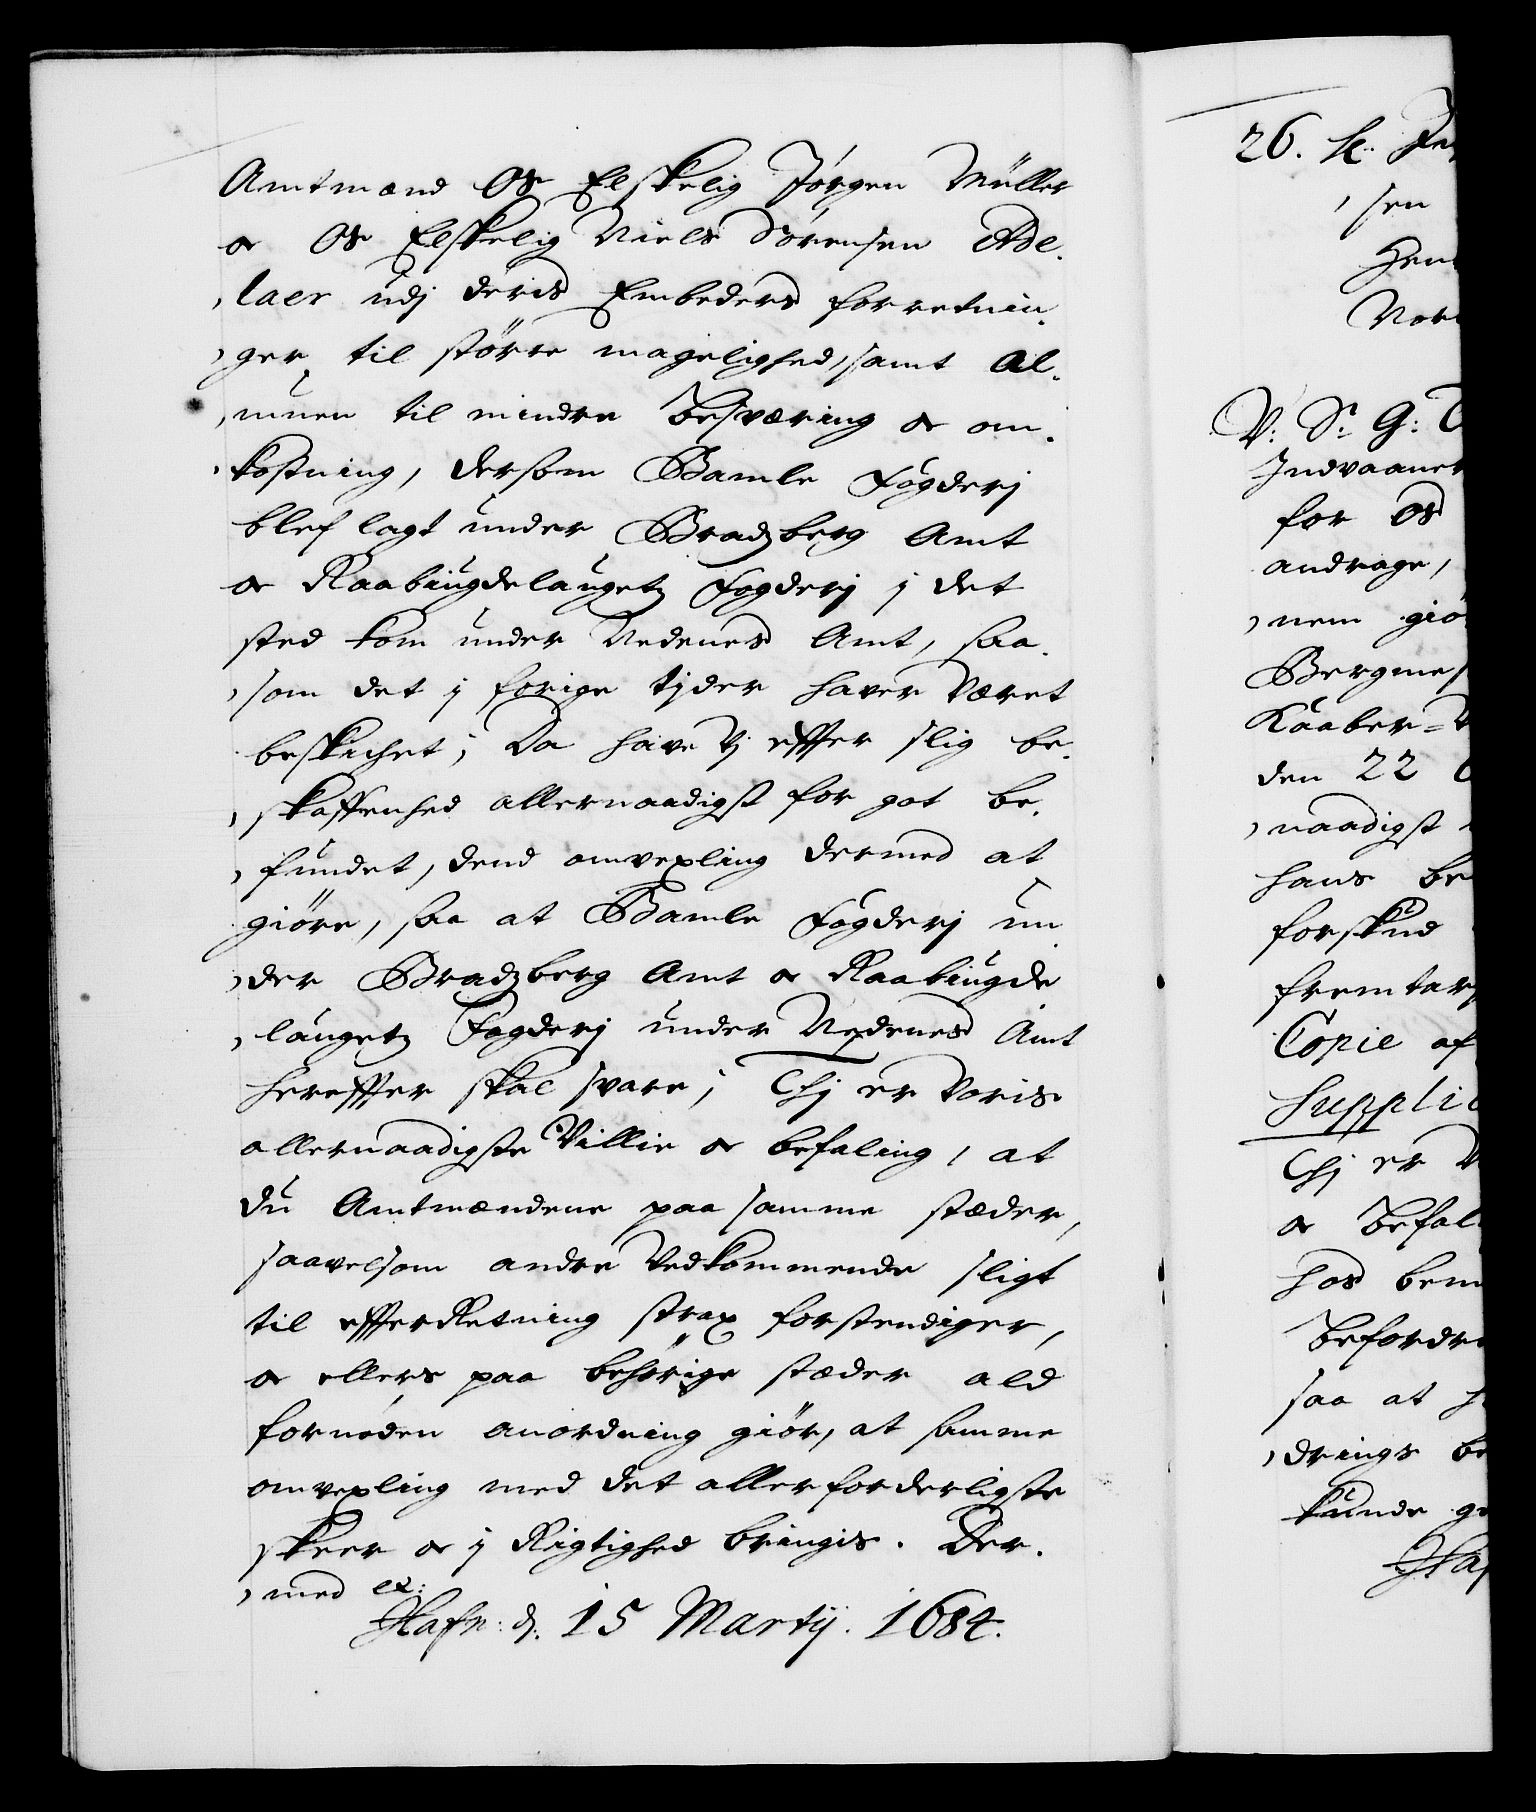 Amtmænd Os Elskelig Jørgen Müller
oc Os Elskelig Niels Sørensen Ade-
laer udj deris Embeders forretnin-
ger, til större magelighed, samt Al-
muen til mindre besværing oc om-
kostning, dersom Bamle Fogderj
blef lagt under Bradzberg Amt
oc Raabiugdelaugetz Fogderj j det
sted kom under Nedenes Amt, saa-
som det j forige tjder hafver været
beskichet; Da have Vj effter slig be-
skaffenhed allernaadigst for got be-
fundet, dend omvexling dermed at
giöre, saa at Bamle Fogderj un-
der Bradzberg Amt oc Raabiugde
laugetz Fogderj under Nedenes Amt
hereffter skal svare; Thj er Voris
allernaadigste Villie oc befaling, at
du Amtmændene paa samme stæder,
saavelsom andre Vedkommende sligt
til effterRetning strax forstendiger,
oc ellers paa behörige stæder ald
fornøden anordning giör, at samme
omvexling med det allerforderligste
skeer oc j Rigtighed bringis. Der-
med etc:
Hafn: d: 15 Martij. 1684.
26.
sen
V: Sr. G:
Indvaaner
for os
andrage,
nem giö
Bergmes
Kaaber=
den 22
naadigst
hans be
forskud
fremtar
Copie af
Supplic
Thj er V
oc befal
hos bem
befordr
saa at h
drings be
kunde g
Haf